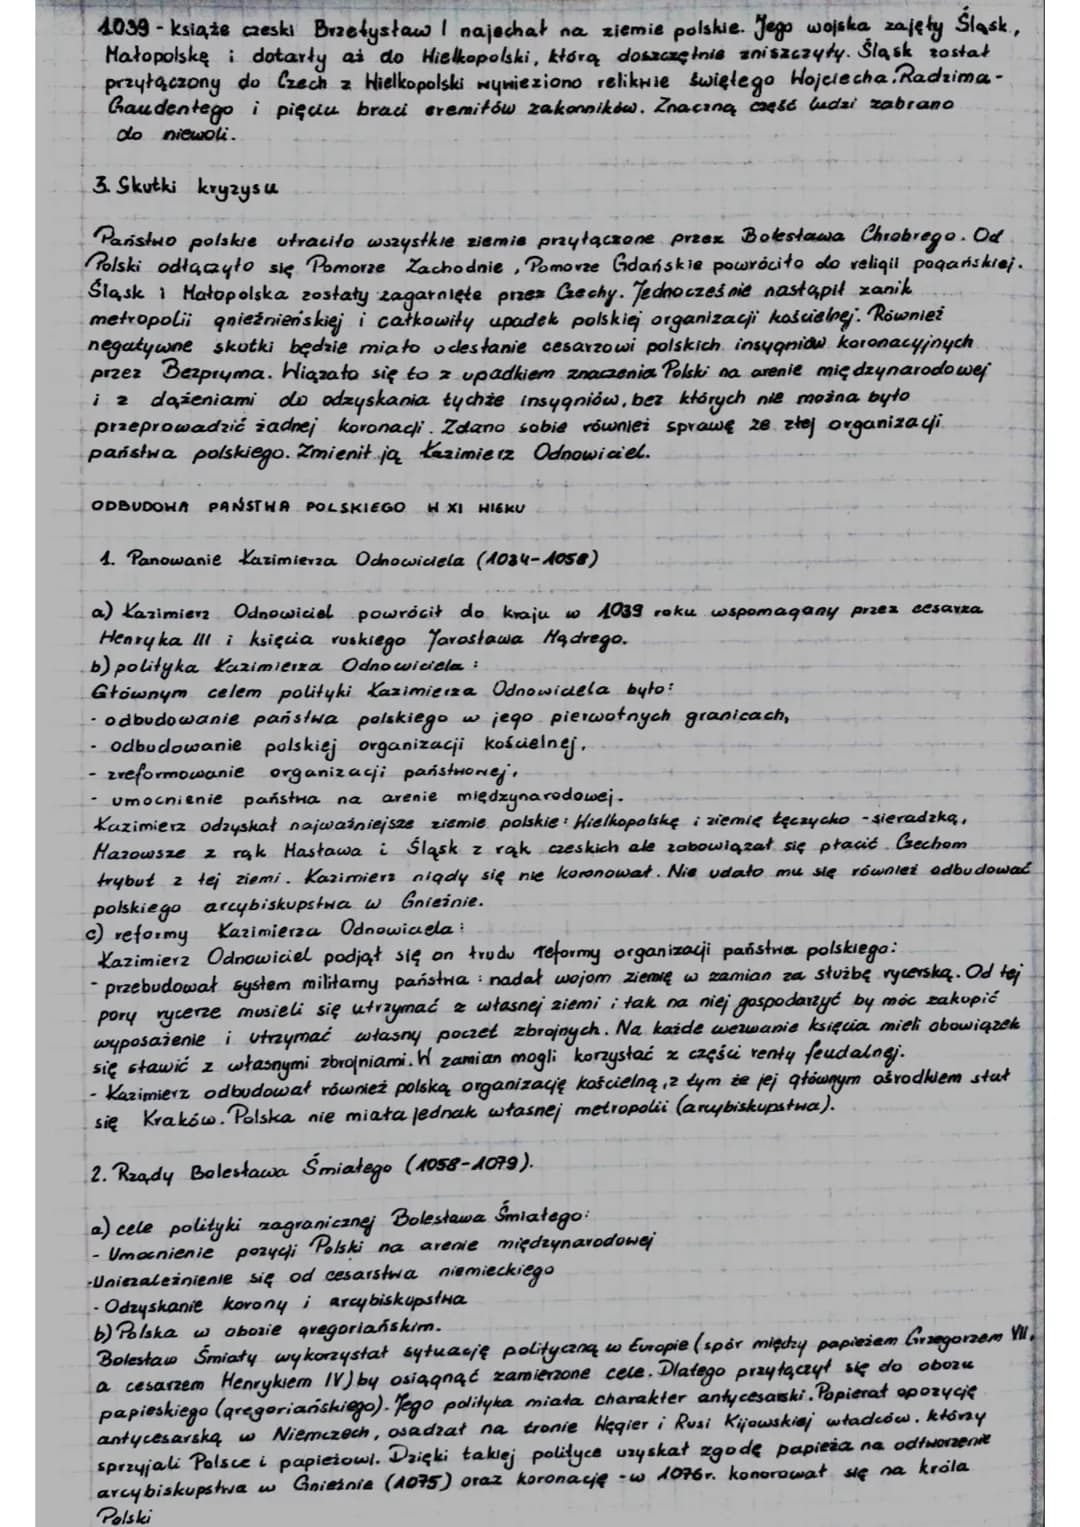 1039 - książe czeski Brzetysław I najechał na ziemie polskie. Jego wojska zajęły Śląsk,
Małopolskę i dotarły aż do Wielkopolski, którą doszczętnie zniszczyły. Śląsk został
przyłączony do Czech z Wielkopolski wywieziono relikwie świętego Wojciecha. Radzima-
Gaudentego i pięciu braci eremitów zakonników. Znaczną część ludzi zabrano
do niewoli.
3. Skutki kryzysu
Państwo polskie utraciło wszystkie ziemie przyłączone przez Bolesława Chrobrego. Od
Polski odłączyło się Pomorze Zachodnie, Pomorze Gdańskie powróciło do religii pogańskiej.
Śląsk i Małopolska zostały zagarnięte przez Czechy. Jednocześnie nastąpił zanik
metropolii gnieźnieńskiej i całkowity upadek polskiej organizacji kościelnej. Również
negatywne skutki będzie miało odesłanie cesarzowi polskich insygniów koronacyjnych
przez Bezpryma. Wiązało się to z upadkiem znaczenia Polski na arenie międzynarodowej
i z dążeniami do odzyskania tychże insygniów, bez których nie można było
przeprowadzić żadnej koronacji. Zdano sobie również sprawę ze złej organizacji
państwa polskiego. Zmienił ją Kazimierz Odnowiciel.
ODBUDOWA PAŃSTWA POLSKIEGO W XI WIEKU
1. Panowanie Kazimierza Odnowiciela (1034-1058)
a) Kazimierz Odnowiciel powrócił do kraju w 1039 roku wspomagany przez cesarza
Henryka III i księcia ruskiego Jarosława Mądrego.
b) polityka Kazimierza Odnowiciela:
Głównym celem polityki Kazimierza Odnowiciela było:
- odbudowanie państwa polskiego w jego pierwotnych granicach,
- odbudowanie polskiej organizacji kościelnej,
- zreformowanie organizacji państwowej,
- umocnienie państwa na arenie międzynarodowej.
Kazimierz odzyskał najważniejsze ziemie polskie: Wielkopolskę i ziemię łęczycko-sieradzką,
Mazowsze z rąk Masława i Śląsk z rąk czeskich ale zobowiązał się płacić Czechom
trybut z tej ziemi. Kazimierz nigdy się nie koronował. Nie udało mu się również odbudować
polskiego arcybiskupstwa w Gnieźnie.
c) reformy Kazimierza Odnowiciela:
Kazimierz Odnowiciel podjął się on trudu reformy organizacji państwa polskiego:
- przebudował system militarny państwa: nadał wojom ziemię w zamian za służbę rycerską. Od tej
pory rycerze musieli się utrzymać z własnej ziemi i tak na niej gospodarzyć by móc zakupić
wyposażenie i utrzymać własny poczet zbrojnych. Na każde wezwanie księcia mieli obowiązek
się stawić z własnymi zbrojniami. W zamian mogli korzystać z części renty feudalnej.
- Kazimierz odbudował również polską organizację kościelną, z tym że jej głównym ośrodkiem stał
się Kraków. Polska nie miała jednak własnej metropolii (arcybiskupstwa).
2. Rządy Bolesława Śmiałego (1058-1079).
a) cele polityki zagranicznej Bolesława Śmiałego:
- Umocnienie pozycji Polski na arenie międzynarodowej
- Uniezależnienie się od cesarstwa niemieckiego
- Odzyskanie korony i arcybiskupstwa
b) Polska w obozie gregoriańskim.
Bolesław Śmiały wykorzystał sytuację polityczną w Europie (spór między papieżem Grzegorzem VII,
a cesarzem Henrykiem IV) by osiągnąć zamierzone cele. Dlatego przyłączył się do obozu
papieskiego (gregoriańskiego). Jego polityka miała charakter antycesarski. Popierał opozycję
antycesarską w Niemczech, osadzał na tronie Węgier i Rusi Kijowskiej władców, którzy
sprzyjali Polsce i papieżowi. Dzięki takiej polityce uzyskał zgodę papieża na odtworzenie
arcybiskupstwa w Gnieźnie (1075) oraz koronację - w 1076r. konorował się na króla
Polski